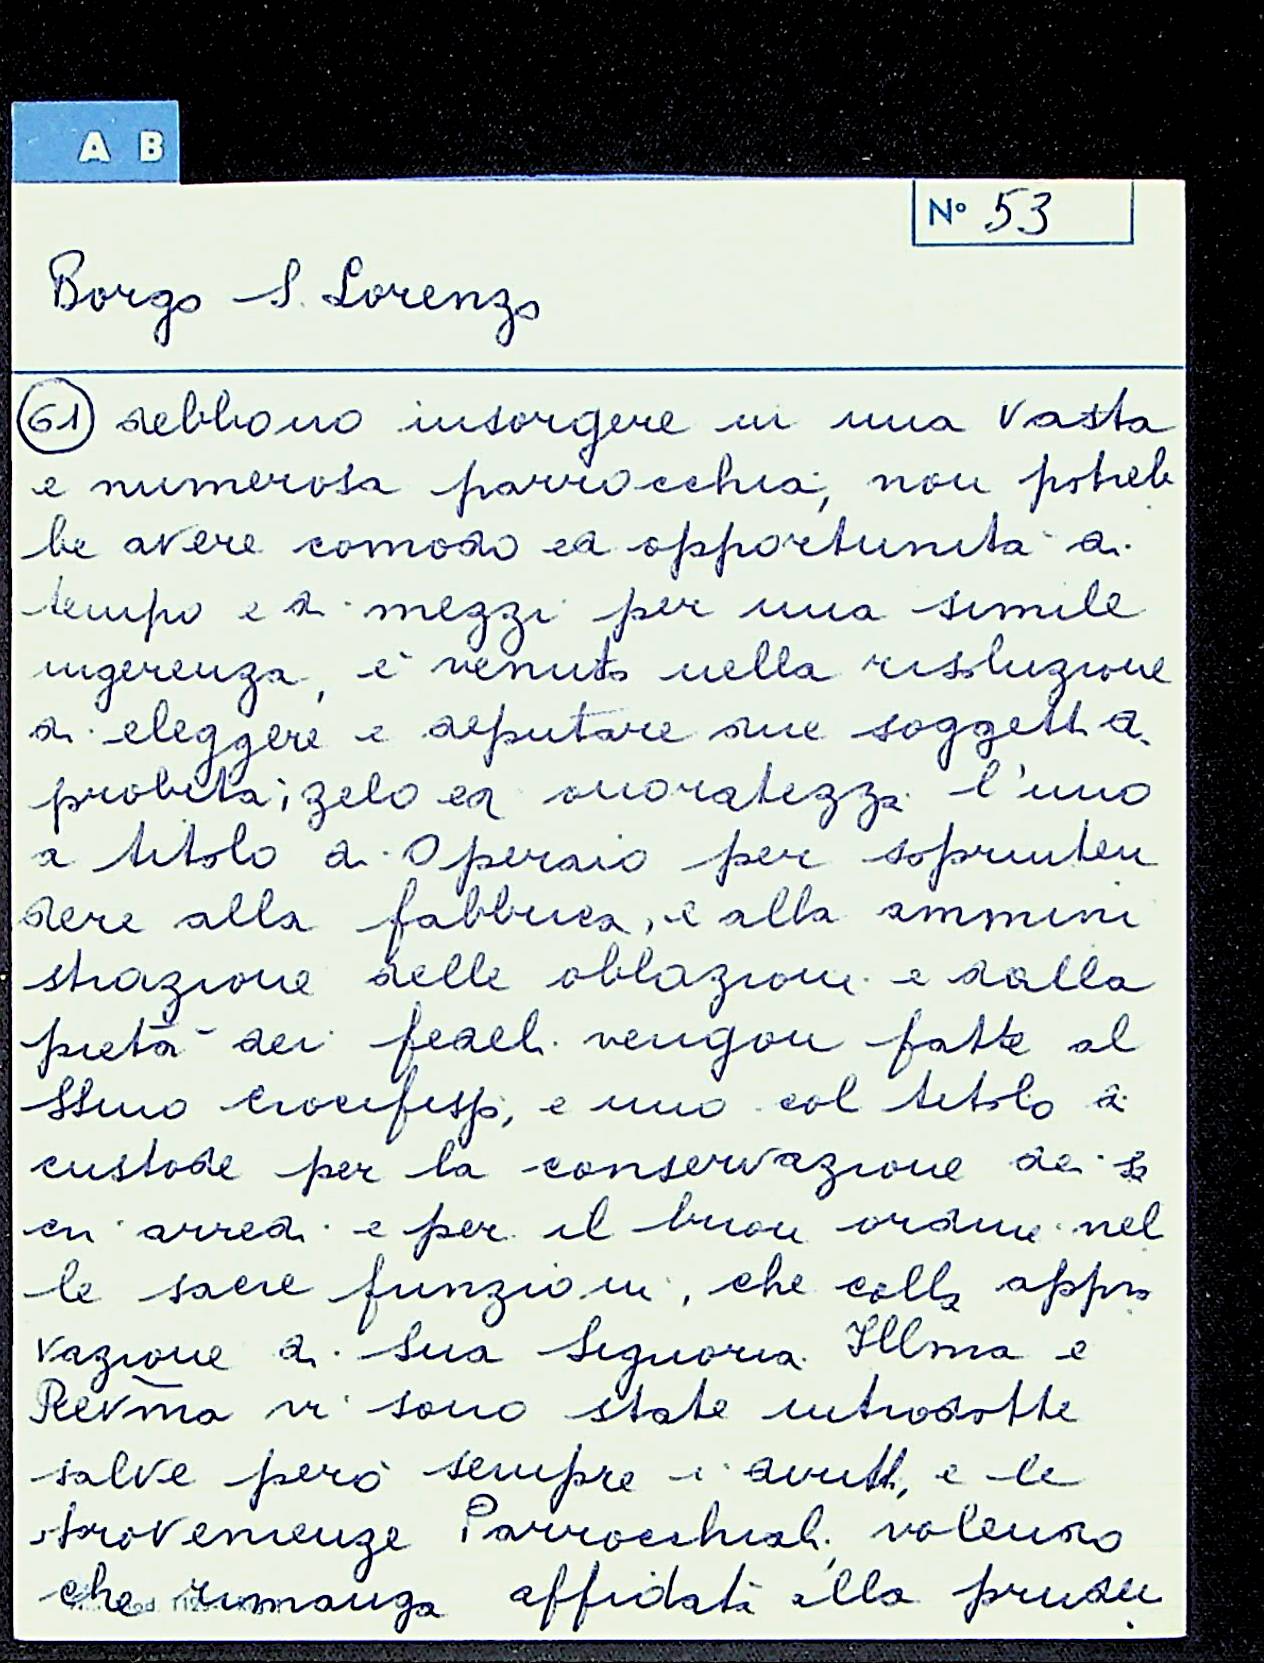 A B
Nº 53
Borgo S. Lorenzo
61 debbono insorgere in una vasta
e numerosa parrocchia, non potreb
be avere comodo ed opportunità di
tempo e di mezzi per una simile
ingerenza, è venuto nella risoluzione
di eleggere e deputare due soggetti di
probità, zelo ed onoratezza l'uno
a titolo di Operaio per soprinten
dere alla fabbrica, e alla ammini
strazione delle oblazioni e dalla
pietà dei fedeli vengon fatte al
SSmo Crocifisso, e uno col titolo di
custode per la conservazione dei sa
cri arredi e per il buon ordine nel
le sacre funzioni, che colla appro
vazione di Sua Signoria Illma e
Revma vi sono state introdotte
salve però sempre i diritti, e le
provenienze Parrocchiali, volendo
che rimanga affidata alla pruden